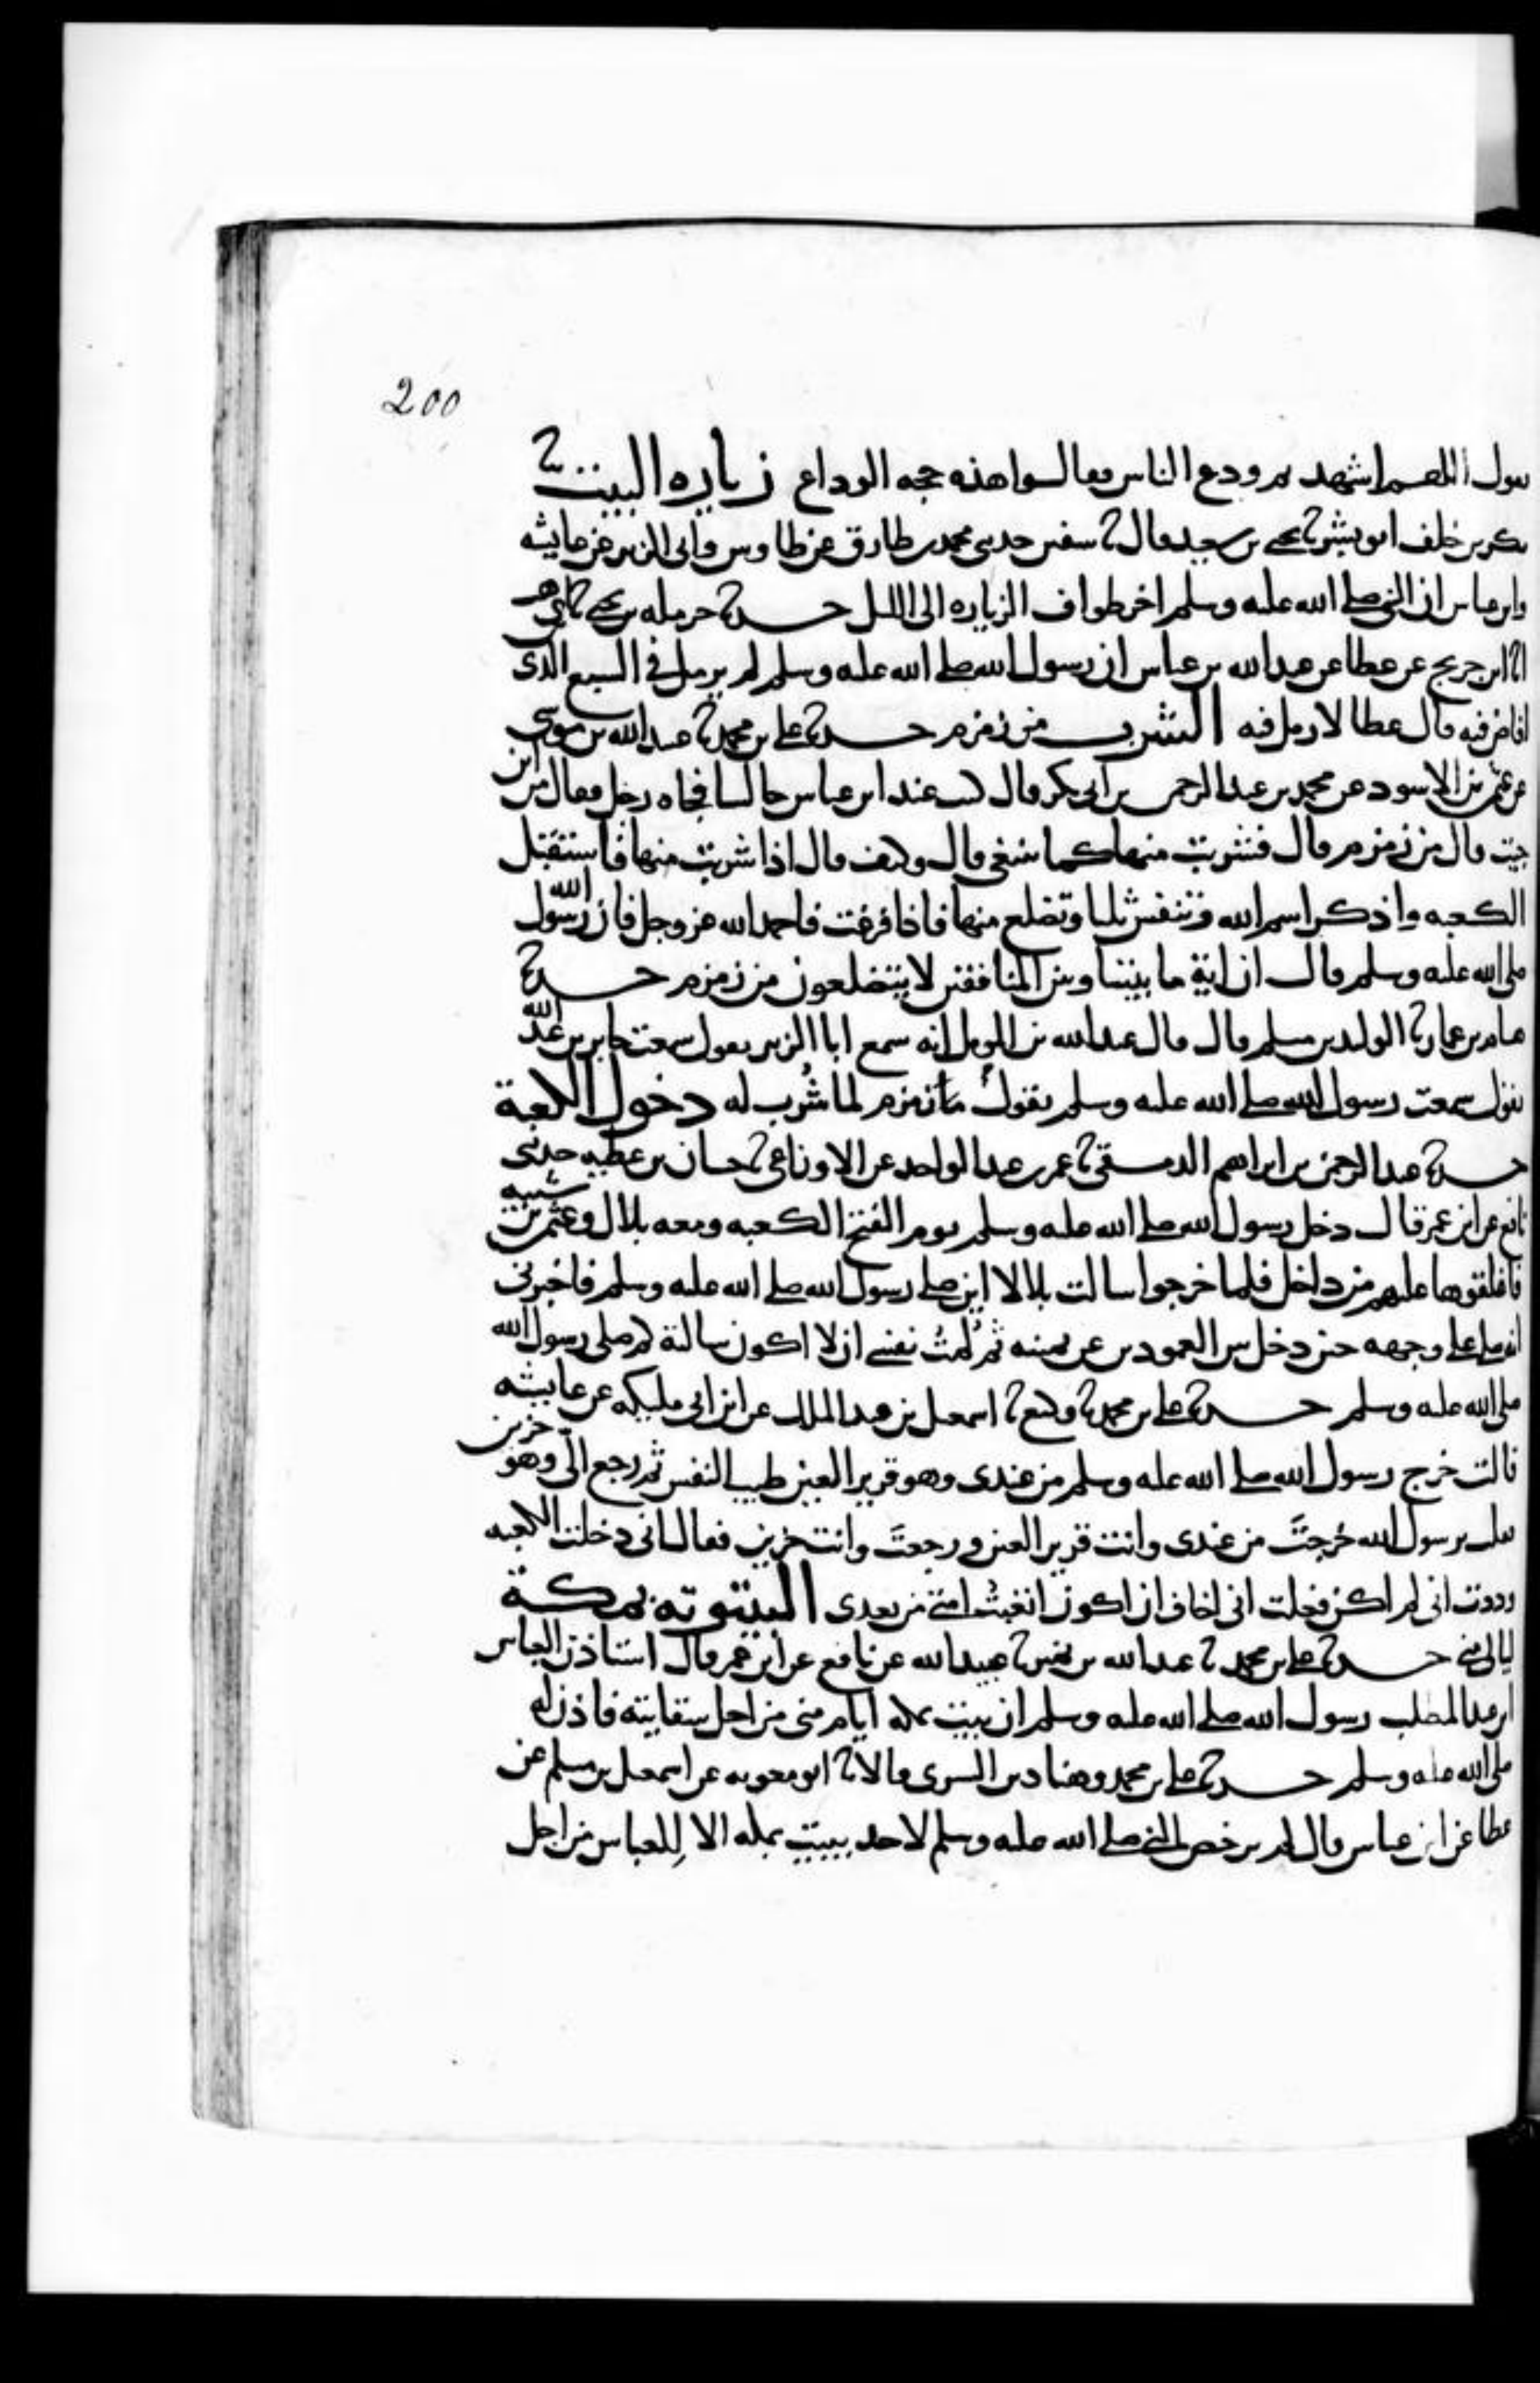 200
يقول اللهم اشهد ثم ودع الناس فقالوا هذه حجه الوداع زياره البيت ثنا
بكر بن خلف ابو بشر ثنا يحيى بن سعيد قال ثنا سفين حدثني محمد بن طارق عن طاوس وابي الزبير عن عايشه
وابن عباس ان النبي صلى الله عليه وسلم اخر طواف الزياره الى الليل حدثنا حرمله بن يحيى ثنا ابن وهب
انا ابن جريج عن عطا عن عبد الله بن عباس ان رسول الله صلى الله عليه وسلم لم يرمل في السبع الذي
افاض فيه قال عطا لا رمل فيه الشرب من زمزم حدثنا علي بن محمد ثنا عبيد الله بن موسى
عن عثمن بن الاسود عن محمد بن عبد الرحمن بن ابي بكر قال كنت عند ابن عباس جالسا فجاه رجل فقال من اين
جيت قال من زمزم قال فشربت منها كما ينبغي قال وكيف قال اذا شربت منها فاستقبل
الكعبه واذكر اسم الله وتنفس ثلثا وتضلع منها فاذا فرغت فاحمد الله عز وجل فان رسول الله
صلى الله عليه وسلم قال ان اية ما بيننا وبين المنافقين لا يتضلعون من زمزم حدثنا
هشام بن عمار ثنا الوليد بن مسلم قال قال عبد الله بن المومل انه سمع ابا الزبير يقول سمعت جابر بن عبد الله
يقول سمعت رسول الله صلى الله عليه وسلم يقول ماء زمزم لما شُرب له دخول الكعبة
حدثنا عبد الرحمن بن ابراهيم الدمشقي ثنا عمر بن عبد الواحد عن الاوزاعي ثنا حسان بن عطيه حدثني
نافع عن ابن عمر قال دخل رسول الله صلى الله عليه وسلم يوم الفتح الكعبه ومعه بلال وعثمن بن شيبه
فاغلقوها عليهم من داخل فلما خرجوا سالت بلالا اين صلى رسول الله صلى الله عليه وسلم فاخبرني
انه صلى على وجهه حين دخل بين العمودين عن يمينه ثم لُمتُ نفسي ان لا اكون سالته كم صلى رسول الله
صلى الله عليه وسلم حدثنا علي بن محمد ثنا وكيع ثنا اسمعيل بن عبد الملك عن ابن ابي مليكه عن عايشه
قالت خرج رسول الله صلى الله عليه وسلم من عندي وهو قرير العين طيب النفس ثم رجع اليّ وهو حزين
فقلت يرسول الله خرجتَ من عندي وانت قرير العين ورجعتَ وانت حزين فقال اني دخلت الكعبه
ووددت اني لم اكن فعلت اني اخاف ان اكون اتعبتُ امتي من بعدي البيتوته بمكة
ليالي منى حدثنا علي بن محمد ثنا عبد الله بن نمير ثنا عبيد الله عن نافع عن ابن عمر قال استاذن العباس
ابن عبد المطلب رسول الله صلى الله عليه وسلم ان يبيت بمكه ايام منى من اجل سقايته فاذن له
صلى الله عليه وسلم حدثنا علي بن محمد وهناد بن السري قالا ثنا ابو معويه عن اسمعيل بن مسلم عن
عطا عن ابن عباس قال لم يرخص النبي صلى الله عليه وسلم لاحد يبيت بمكه الا لِلعباس من اجل